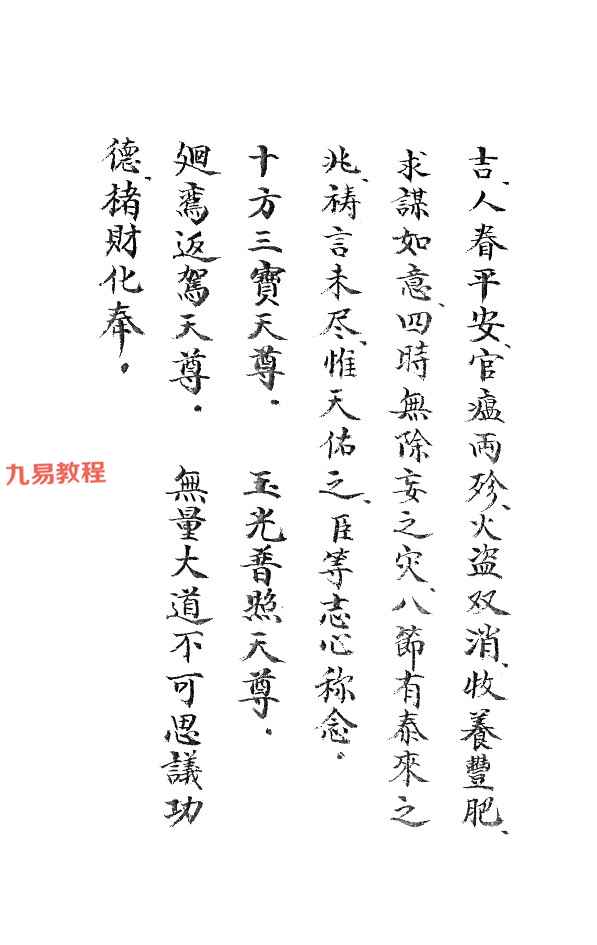 吉、人眷平安、官瘟両殄、火盗双消、牧養豐肥、
求謀如意、四時無除妄之灾、八節有泰來之
兆、祷言未尽、惟天佑之、臣等志心称念。
十方三寶天尊。 玉光普照天尊。
廻鸞返駕天尊。 無量大道不可思議功
德、楮財化奉。
九易教程